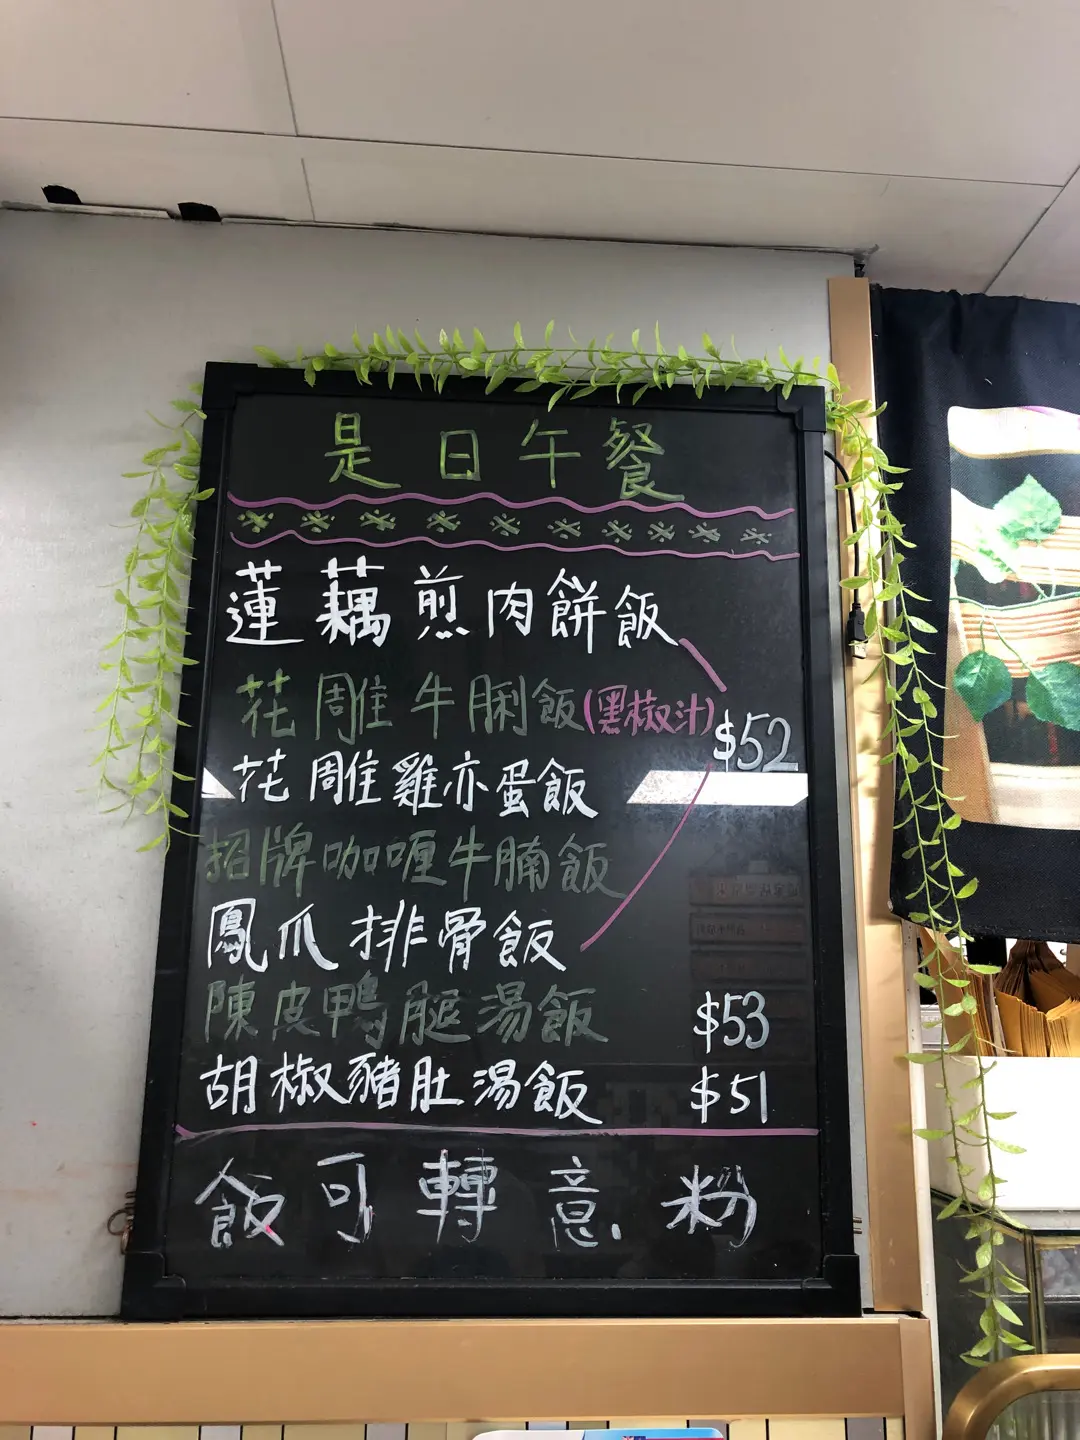 是日午餐
蓮藕煎肉餅飯
花雕牛脷飯(黑椒汁)
$52
花雕雞亦蛋飯
招牌咖喱牛腩飯
鳳爪排骨飯
陳皮鴨腿湯飯 $53
胡椒豬肚湯飯 $51
飯可轉意粉